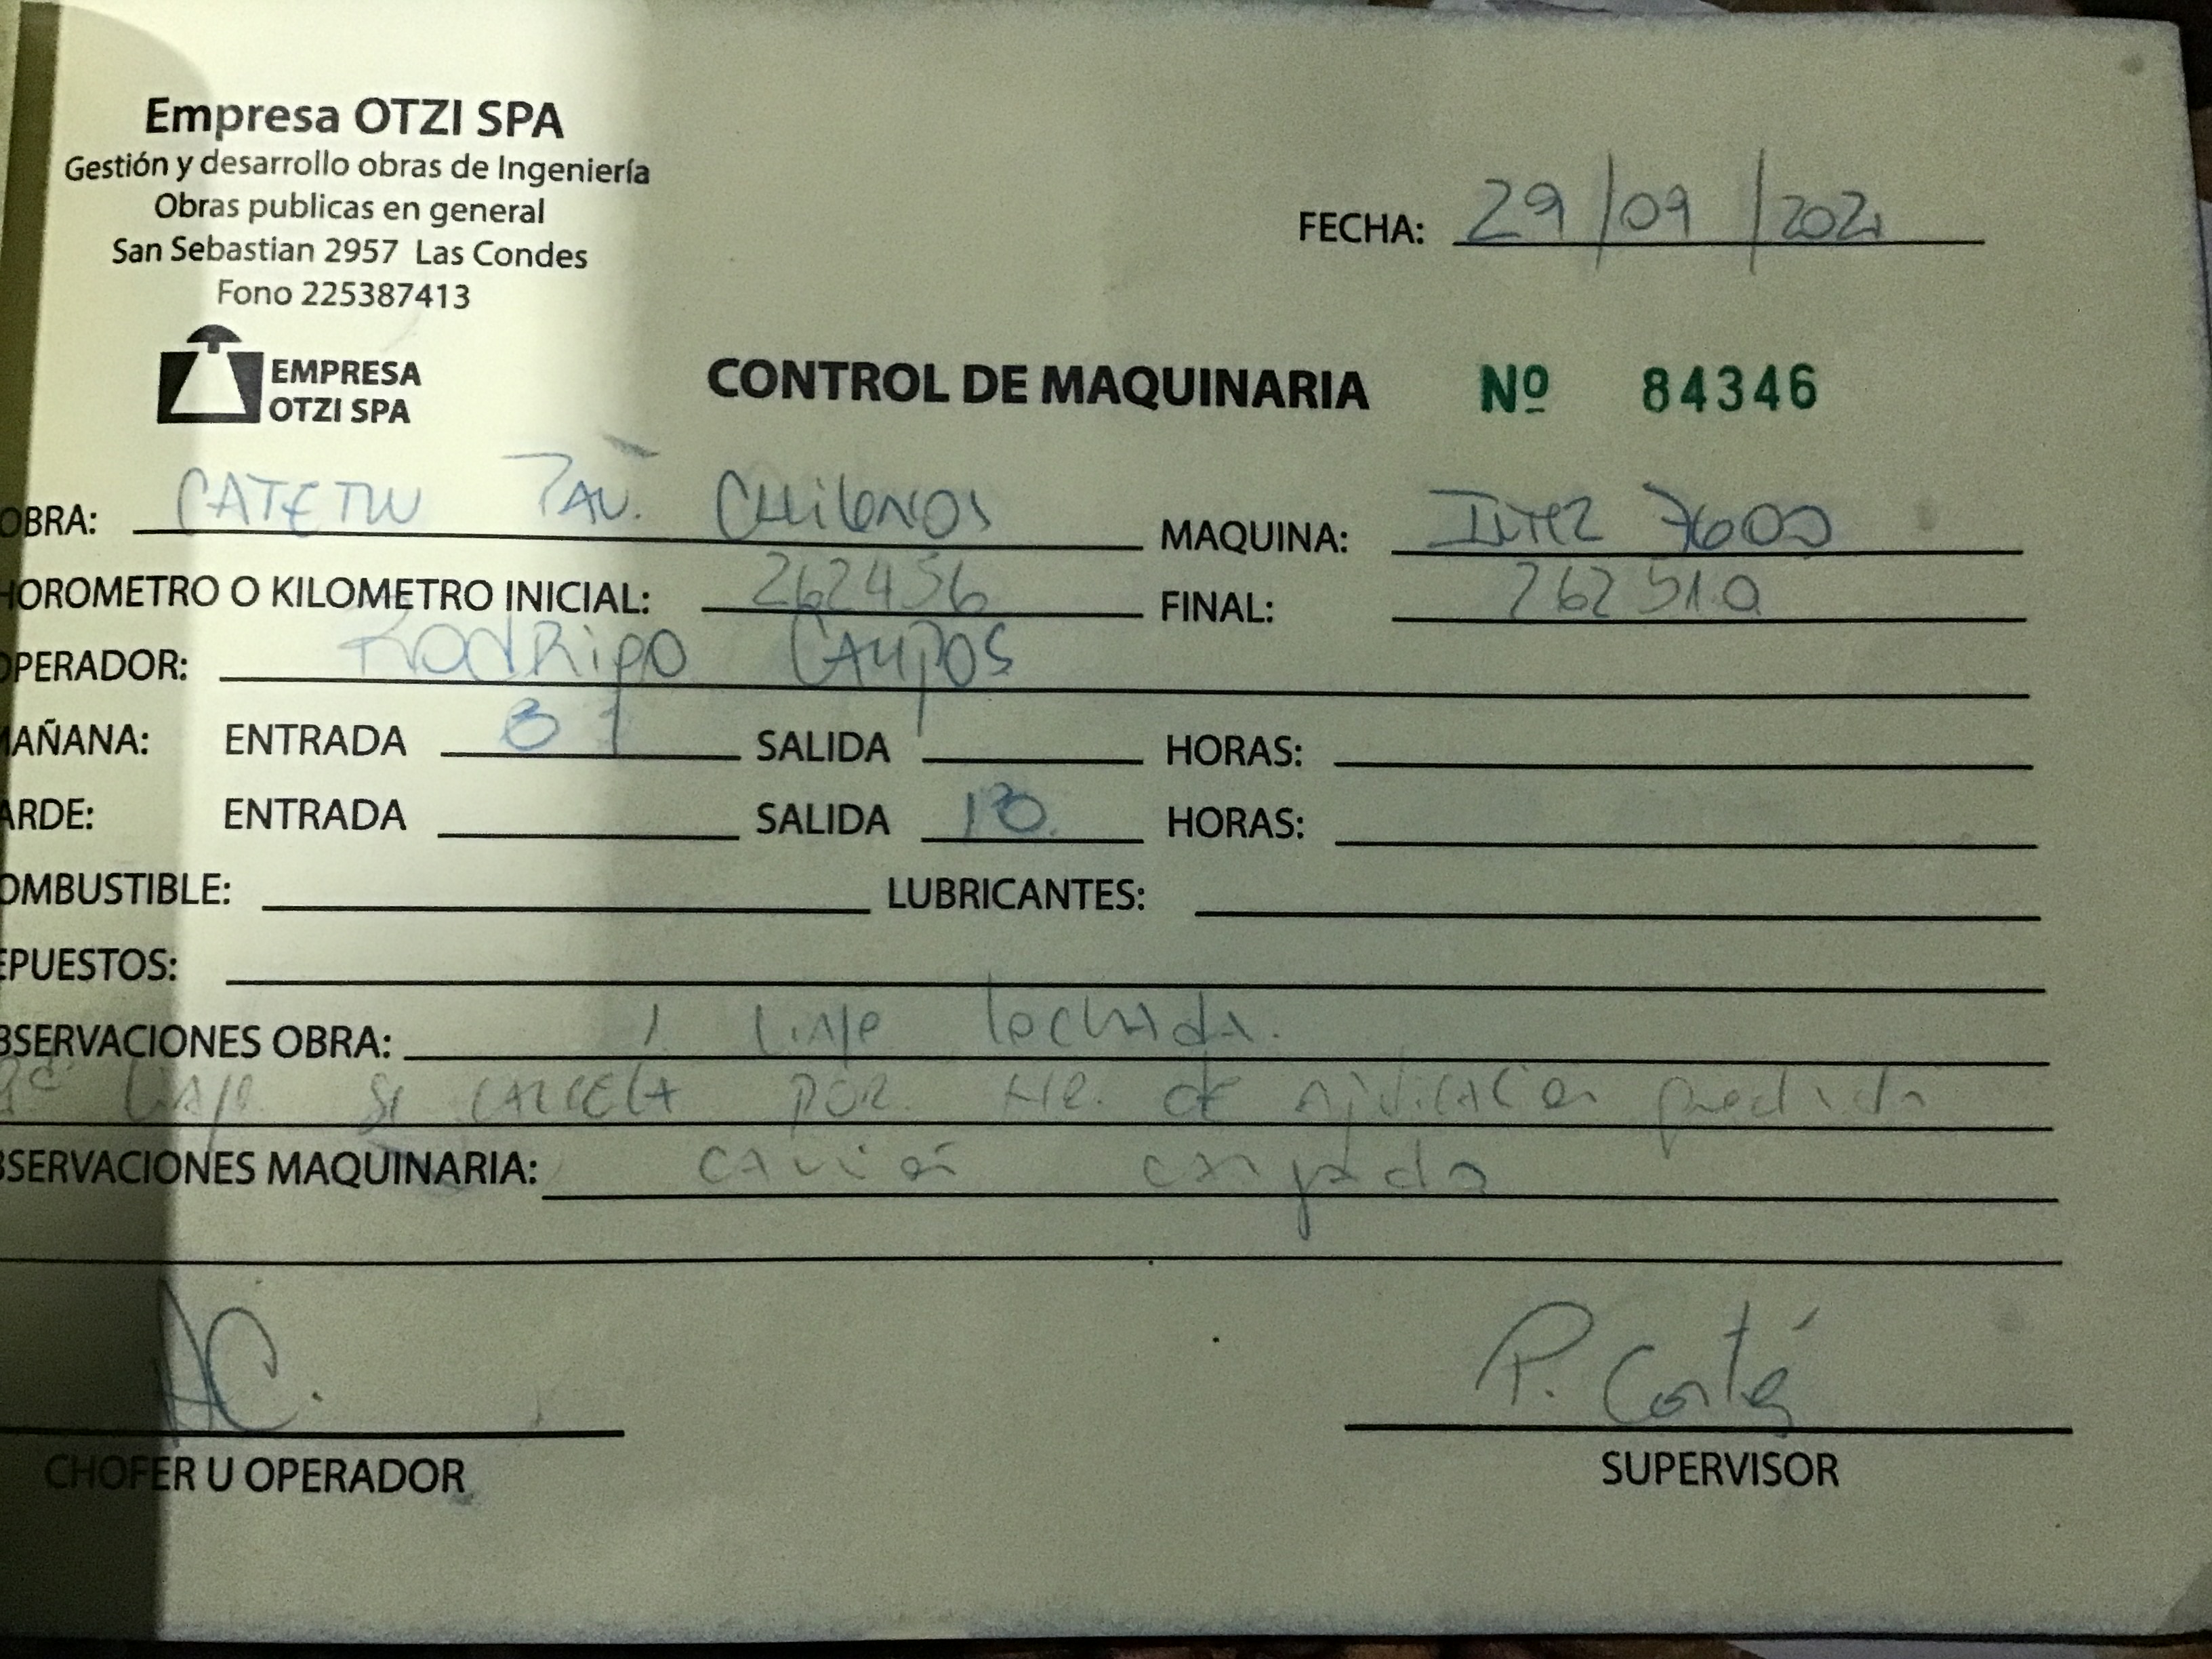 Empresa OTZI SPA
Gestión y desarrollo obras de Ingeniería
Obras publicas en general
San Sebastian 2957 Las Condes
Fono 225387413
FECHA: 29/09/2021
EMPRESA
OTZI SPA
CONTROL DE MAQUINARIA Nº 84346
OBRA: PAV. CHILENOS MAQUINA: INTER 7600
HOROMETRO O KILOMETRO INICIAL: 262456 FINAL: 262510
OPERADOR: RODRIGO CAMPOS
MAÑANA: ENTRADA SALIDA HORAS:
ARDE: ENTRADA SALIDA HORAS:
OMBUSTIBLE: LUBRICANTES:
EPUESTOS:
BSERVACIONES OBRA: 1 viaje lechada.
viaje se cancela por de aplicación perdida
BSERVACIONES MAQUINARIA: camión cargado
AC.
P. Cortés
CHOFER U OPERADOR
SUPERVISOR